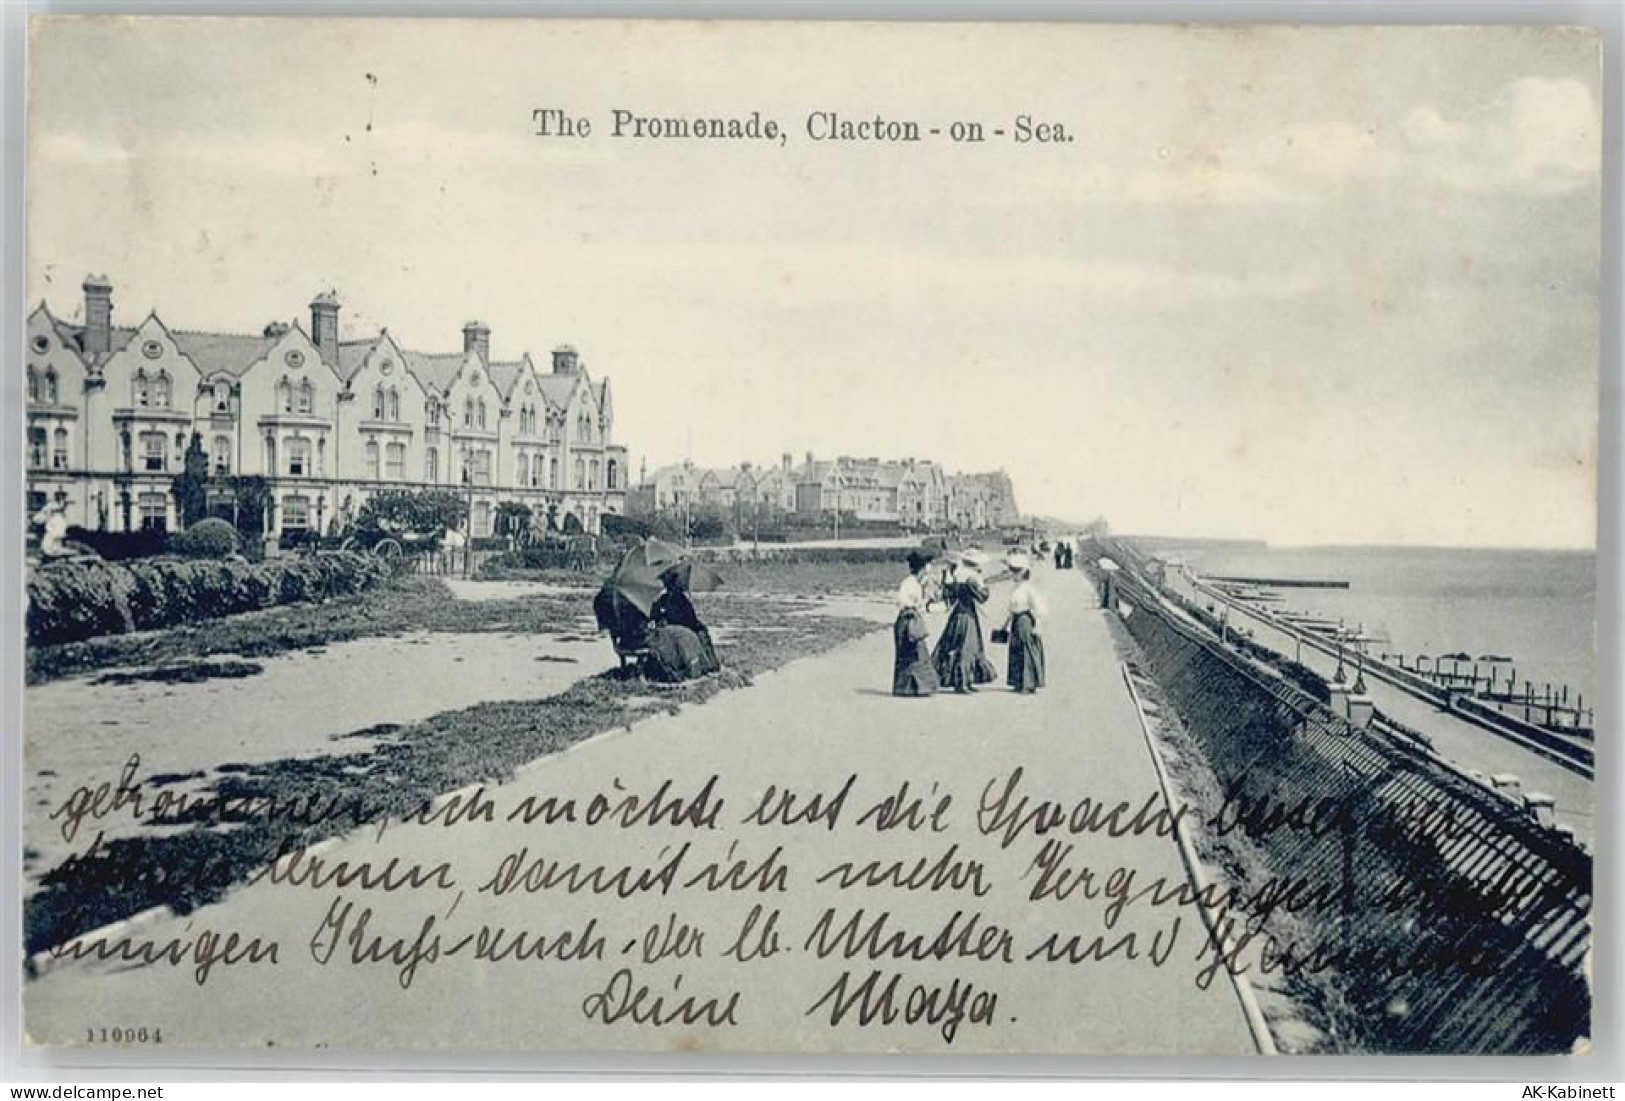 The Promenade, Clacton - on - Sea.
getrommen, ich möchte erst die Sprache besser
lernen, damit ich mehr Vergnügen
innigen Kuss auch der lb. Mutter und
Deine Maya.
110964
www.delcampe.net
AK-Kabinett